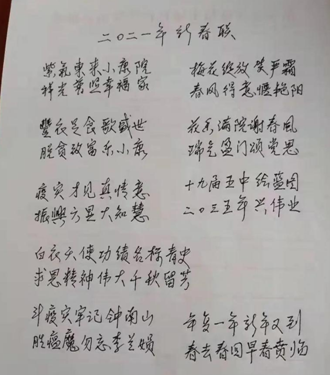 二〇二一年新春联
紫气东来小康院
祥光普照幸福家
梅花绽放笑严霜
春风得意惬艳阳
丰衣足食歌盛世
脱贫致富乐小康
花香满院谢春风
瑞气盈门颂党恩
疫灾才见真情意
振兴方显大知慧
十九届五中绘蓝图
二〇三五年兴伟业
白衣天使功绩名标青史
求思精神伟大千秋留芳
斗疫灾牢记钟南山
胜瘟魔勿忘李兰娟
年年一年新年又到
春去春回早春黄临